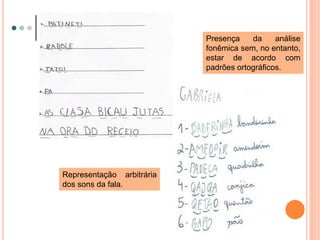 . PATINETI
. RABOLE
. TATOI
. PA
. AS CIASA BICAU JUTAS
NA ORA DO RECEIO
Presença da análise
fonêmica sem, no entanto,
estar de acordo com
padrões ortográficos.
Representação arbitrária
dos sons da fala.
GABRIELA
1- BADERINHA bandeirinha
2- AMEDOIR amendoim
3- PADELA quadrilha
4- QAIQA canjica
5- QETAO quentão
6- BAPO pão